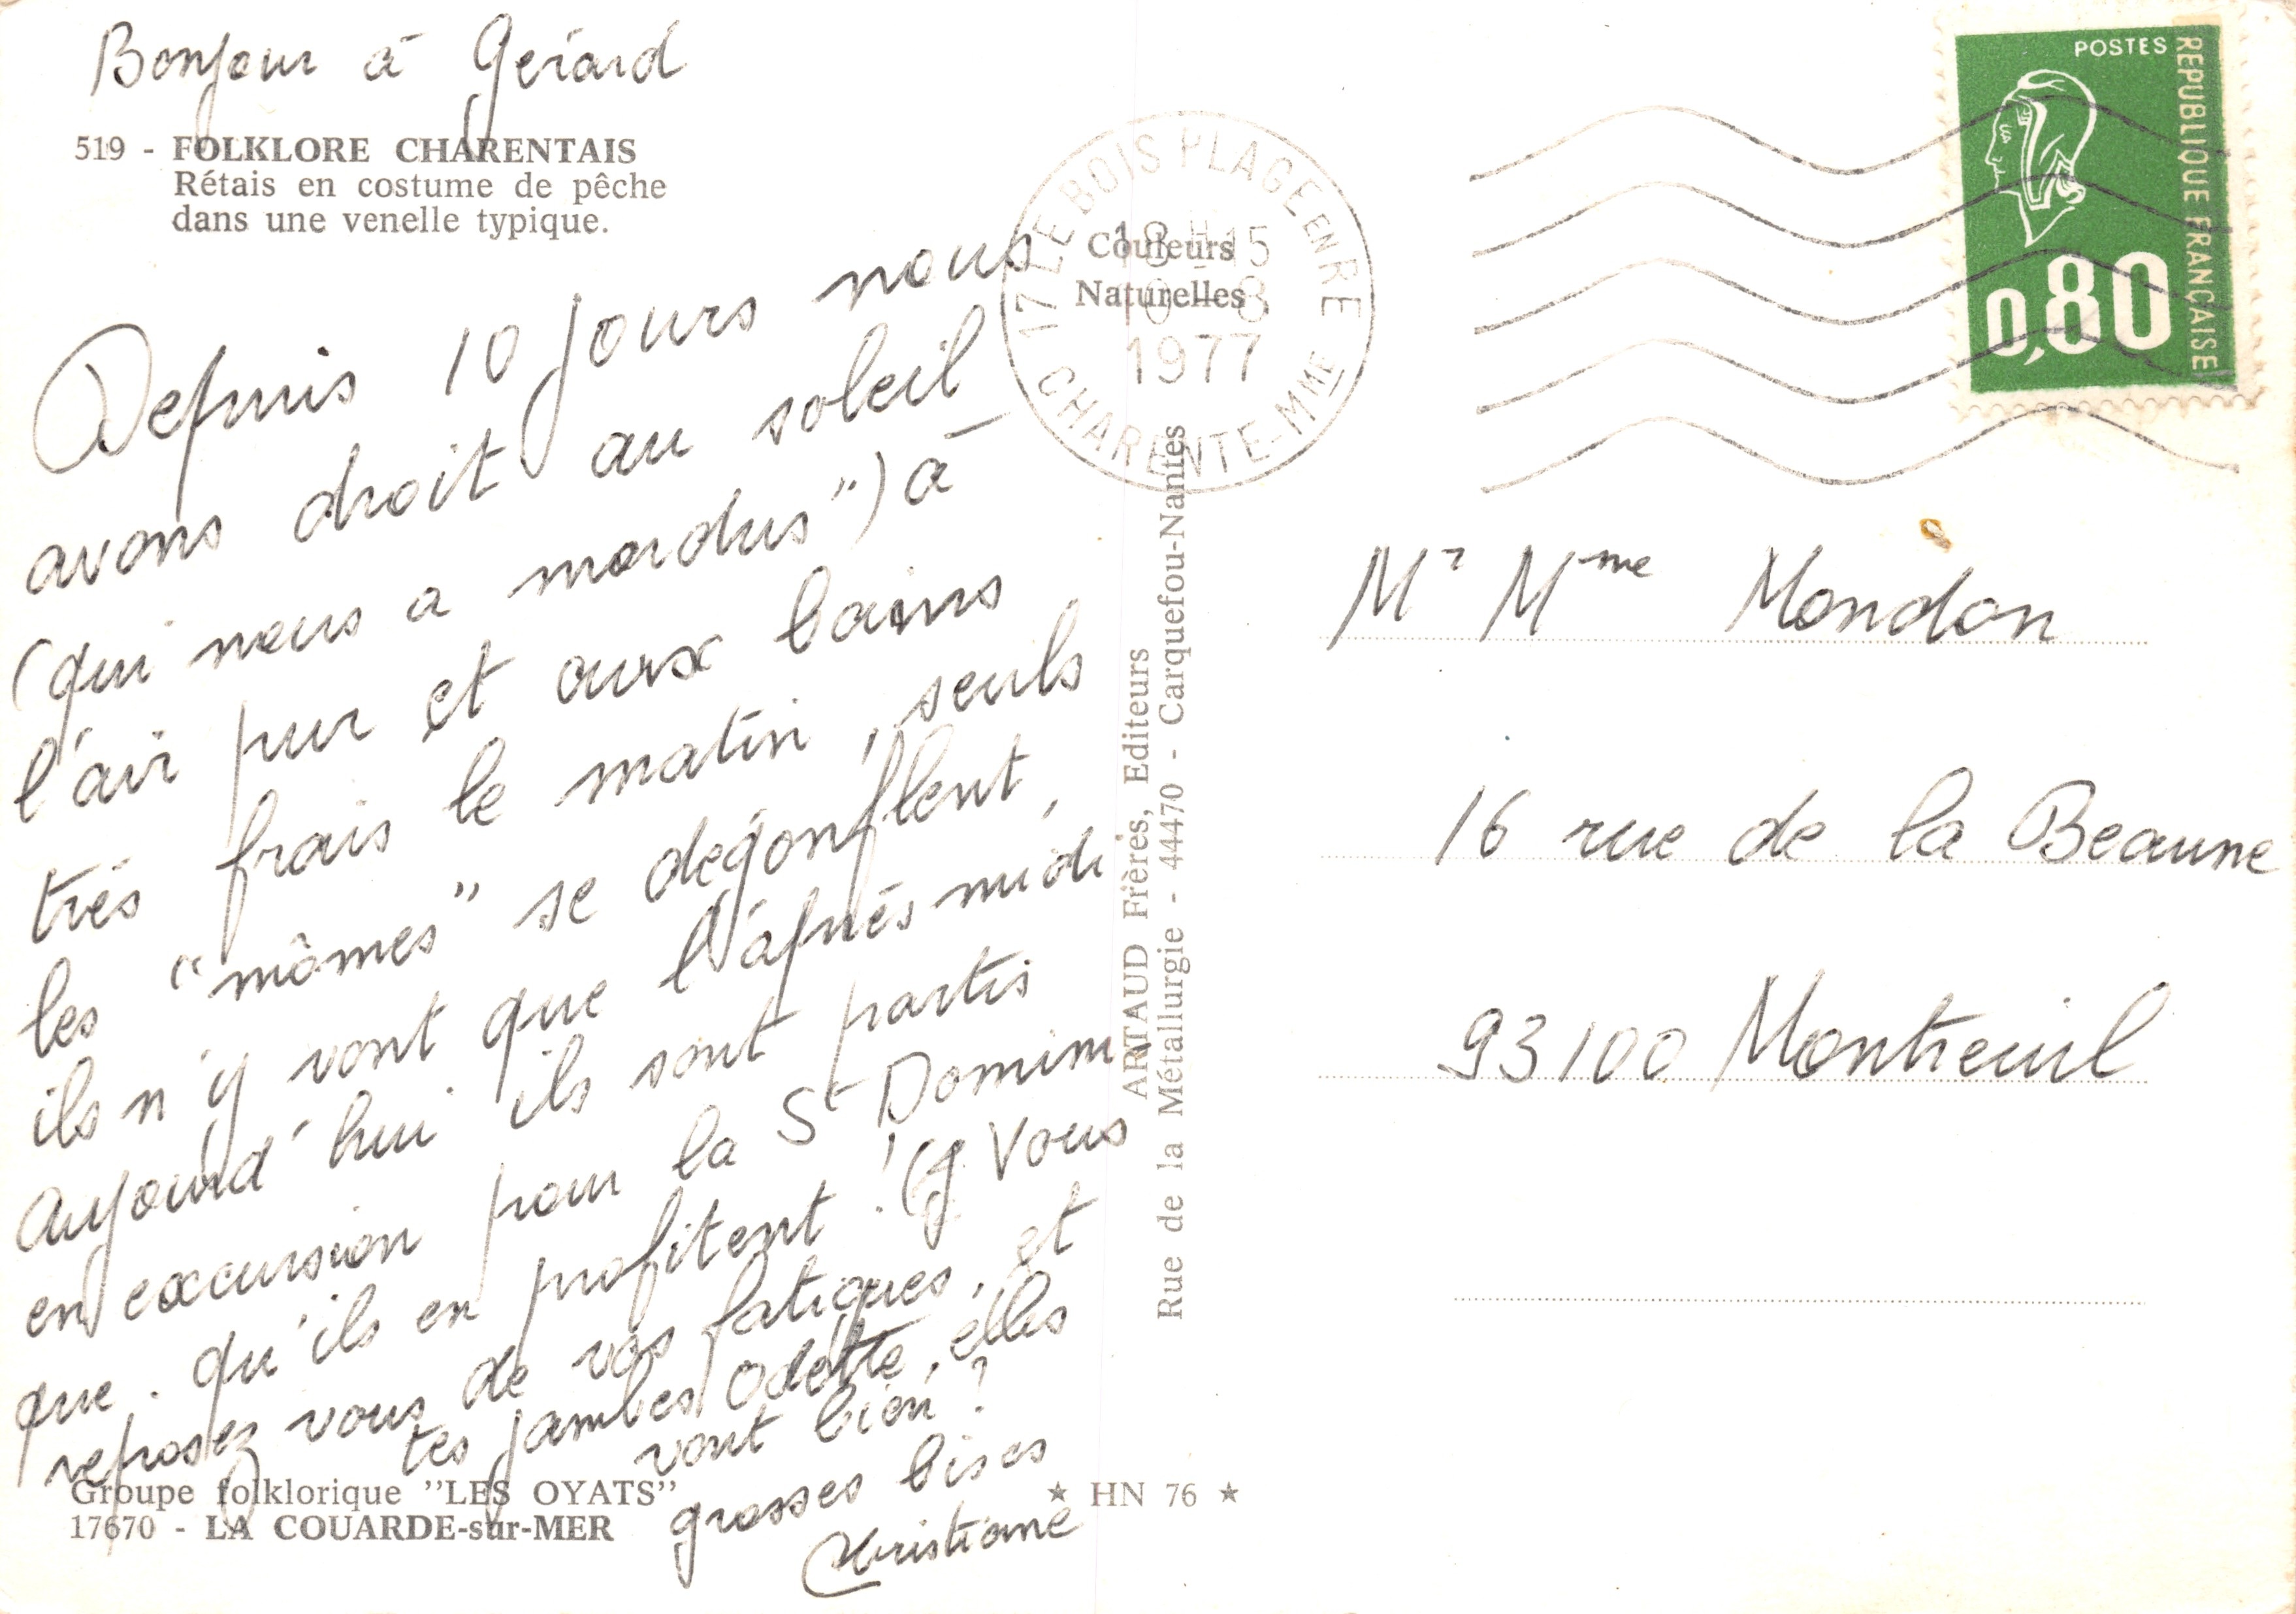 Bonjour à Gérard
519 - FOLKLORE CHARENTAIS
Rétais en costume de pêche
dans une venelle typique.
Depuis 10 jours nous
avons droit au soleil
(qui nous a mordus") à
l'air pur et aux bains
très frais le matin, seuls
les "mômes" se dégonflent,
ils n'y vont que l'après midi
Aujourd'hui ils sont partis
en excursion pour la St Domini
que. qu'ils en profitent ! Vous
reposez vous de vos fatigues, et
tes jambes Odette, elles
vont bien ?
grosses bises
Christiane
Groupe folklorique "LES OYATS"
17670 - LA COUARDE-sur-MER
★ HN 76 ★
Couleurs
Naturelles
17 LE BOIS PLAGE EN RE
18 H 15
8
1977
CHARENTE-MME
ARTAUD Frères, Editeurs
Rue de la Métallurgie - 44470 - Carquefou-Nantes
POSTES
REPUBLIQUE FRANÇAISE
0,80
Mr Mme Mondon
16 rue de la Beaune
93100 Montreuil